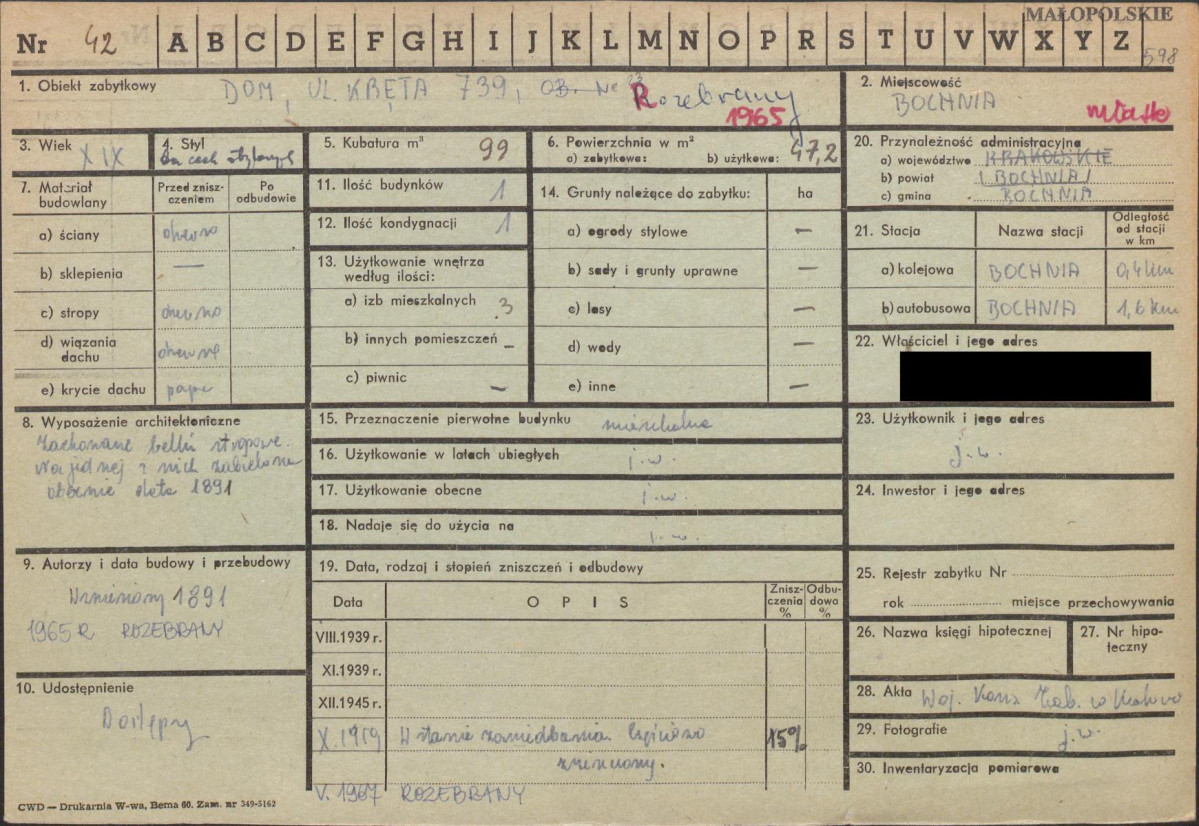 MAŁOPOLSKIE
Nr 42 A B C D E F G H I J K L M N O P R S T U V W X Y Z
598
1. Obiekt zabytkowy DOM, UL. KBĘTA 739, OB. Nr
Rozebrany
1965
2. Miejscowość
BOCHNIA
miasto
3. Wiek XIX
4. Styl
bez cech stylowych
5. Kubatura m³ 99
6. Powierzchnia w m²
a) zabytkowa: b) użytkowa: 47,2
20. Przynależność administracyjna
a) województwo KRAKOWSKIE
b) powiat BOCHNIA
c) gmina BOCHNIA
7. Materiał budowlany
Przed zniszczeniem
Po odbudowie
a) ściany drewno
b) sklepienia —
c) stropy drewno
d) wiązania dachu drewne
e) krycie dachu papa
11. Ilość budynków 1
12. Ilość kondygnacji 1
13. Użytkowanie wnętrza według ilości:
a) izb mieszkalnych 3
b) innych pomieszczeń –
c) piwnic –
14. Grunty należące do zabytku: ha
a) ogrody stylowe –
b) sady i grunty uprawne –
c) lasy –
d) wody –
e) inne –
21. Stacja Nazwa stacji Odległość od stacji w km
a) kolejowa BOCHNIA 0,4 km
b) autobusowa BOCHNIA 1,6 km
22. Właściciel i jego adres
8. Wyposażenie architektoniczne
Zachowane belki stropowe.
Na jednej z nich zabielona
obecnie data 1891
15. Przeznaczenie pierwotne budynku mieszkalne
16. Użytkowanie w latach ubiegłych j.w.
17. Użytkowanie obecne j.w.
18. Nadaje się do użycia na j.w.
23. Użytkownik i jego adres
j.w.
24. Inwestor i jego adres
9. Autorzy i data budowy i przebudowy
Wzniesiony 1891
1965 R ROZEBRANY
10. Udostępnienie
Dostępny
19. Data, rodzaj i stopień zniszczeń i odbudowy
Data OPIS Zniszczenia % Odbudowa %
VIII.1939 r.
XI.1939 r.
XII.1945 r.
X.1959 W stanie zaniedbania. Częściowo 15%
zniszczony.
V. 1967 ROZEBRANY
25. Rejestr zabytku Nr
rok miejsce przechowywania
26. Nazwa księgi hipotecznej
27. Nr hipoteczny
28. Akta Woj. Kons. Zab. w Krakowie
29. Fotografie j.w.
30. Inwentaryzacja pomiarowa
CWD — Drukarnia W-wa, Bema 60. Zam. nr 349-5162